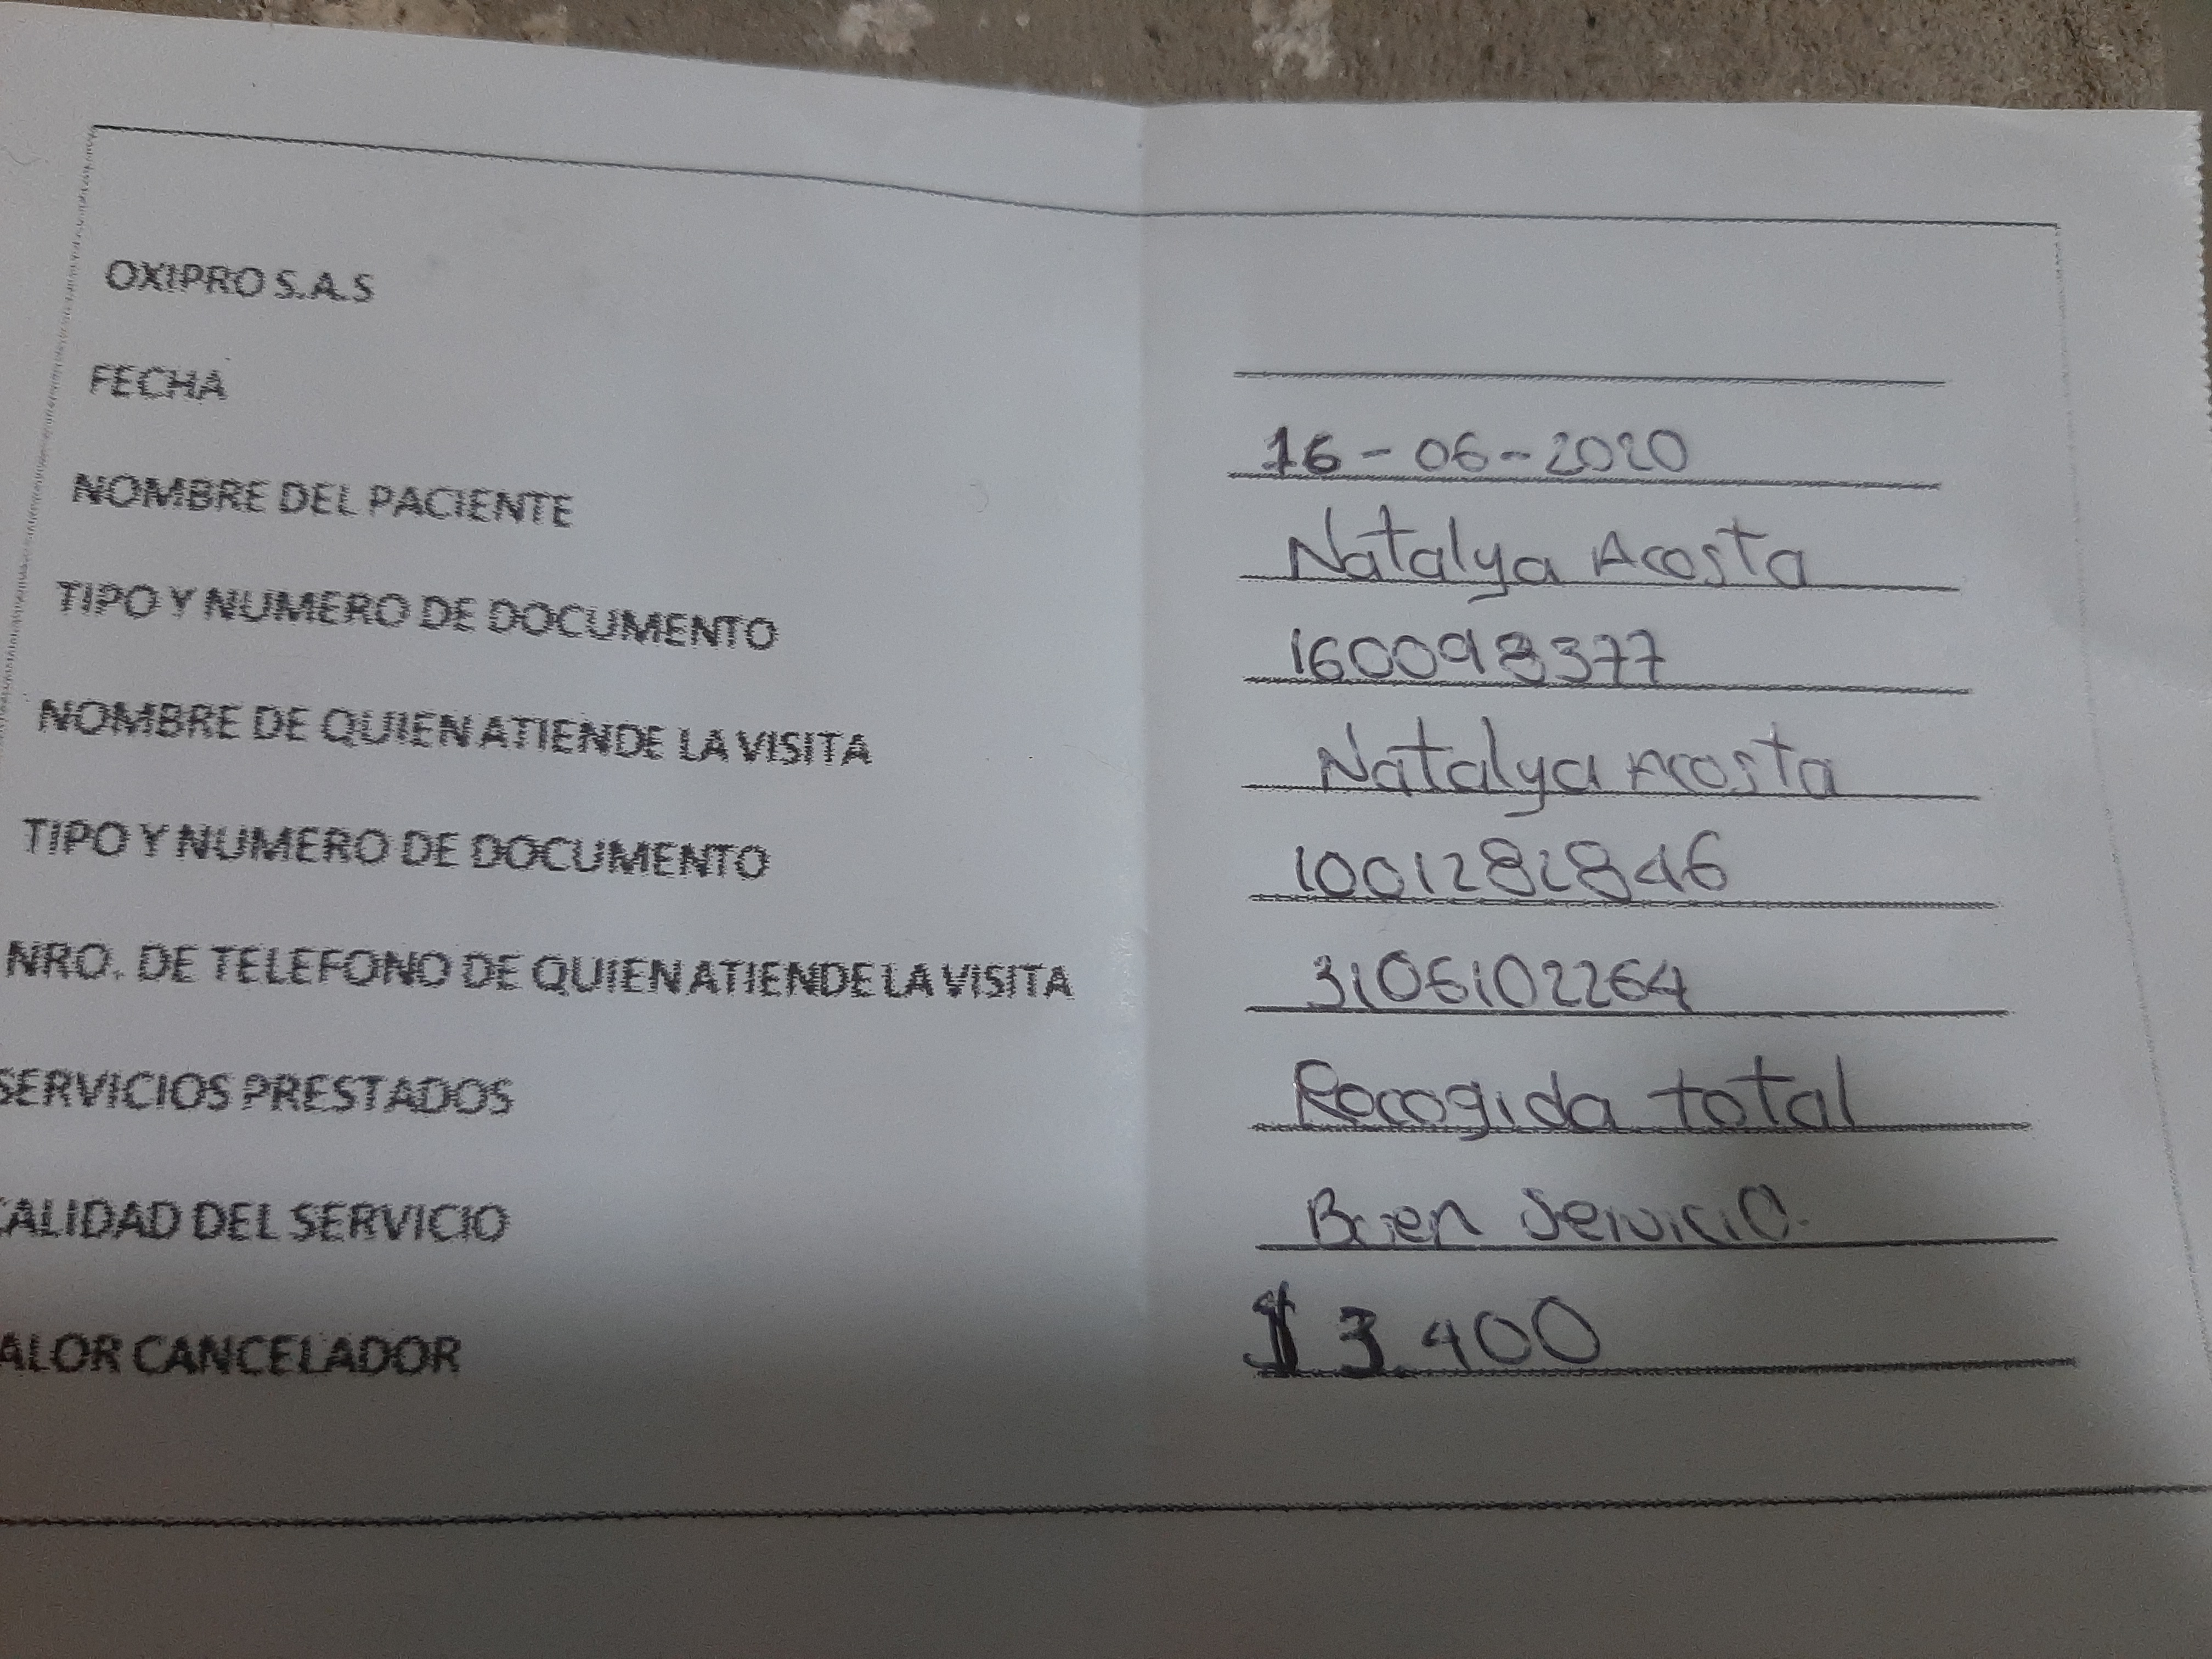 OXIPRO S.A.S
FECHA 16-06-2020
NOMBRE DEL PACIENTE Natalya Acosta
TIPO Y NUMERO DE DOCUMENTO 1600983377
NOMBRE DE QUIEN ATIENDE LA VISITA Natalya Acosta
TIPO Y NUMERO DE DOCUMENTO 1001282846
NRO. DE TELEFONO DE QUIEN ATIENDE LA VISITA 3106102264
SERVICIOS PRESTADOS Recogida total
CALIDAD DEL SERVICIO Buen Servicio.
ALOR CANCELADOR $ 3.400